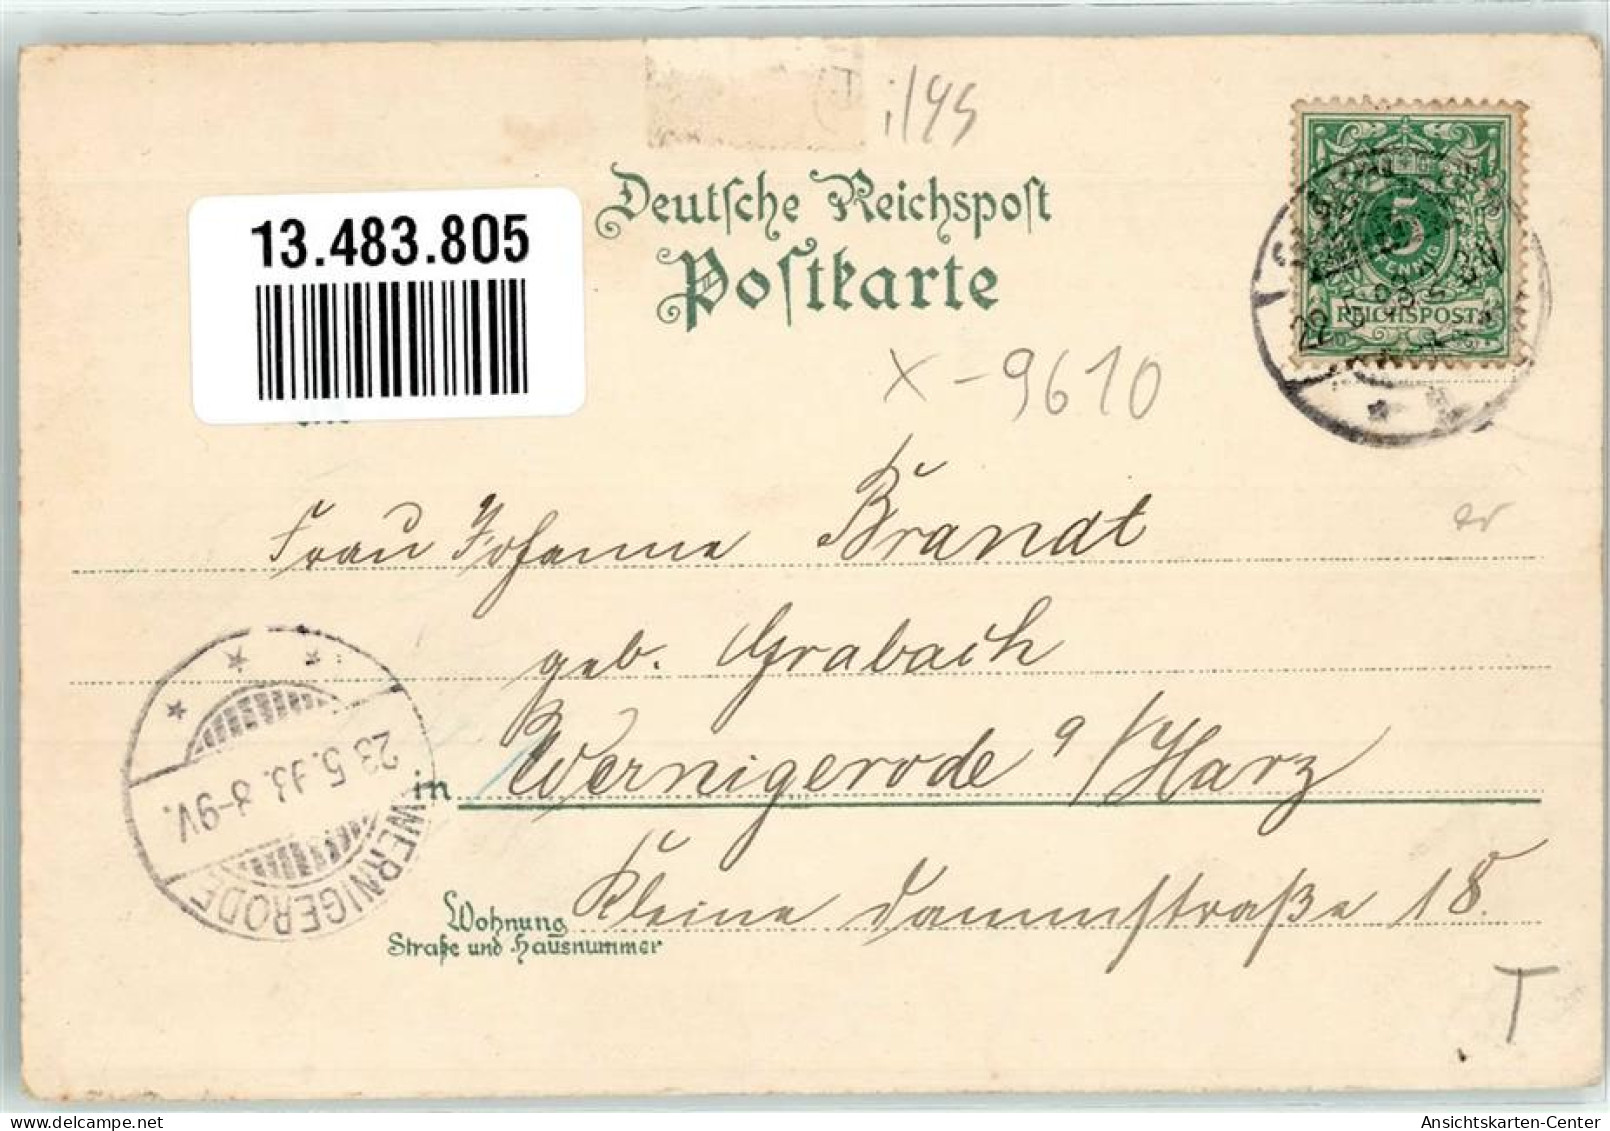 i/95
Deutsche Reichspost
Postkarte
13.483.805
5
PFENNIG
REICHSPOST
22 5 93
X-9610
Frau Johanne Brandt
er
geb. Grabach
in Wernigerode a/Harz
WERNIGERODE
23.5.93. 8-9V.
Wohnung
Straße und Hausnummer
Kleine Dammstraße 18.
T
Ansichtskarten-Center